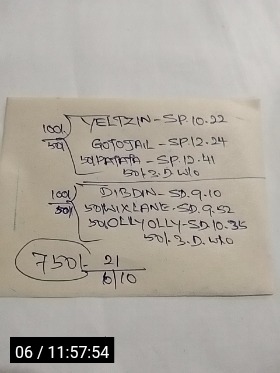 100/. YELTZIN - SP.10.22
50/. GOTOJAIL - SP.12.24
50/. PATATA - SP.12.41
50/. 3. D. W/O
100/. DIBDIN - SD.9.10
50/. 50/. WIXLANE - SD.9.52
50/. OLLYOLLY - SD.10.35
50/. 3. D. W/O
750/. 21
6/10
06 / 11:57:54